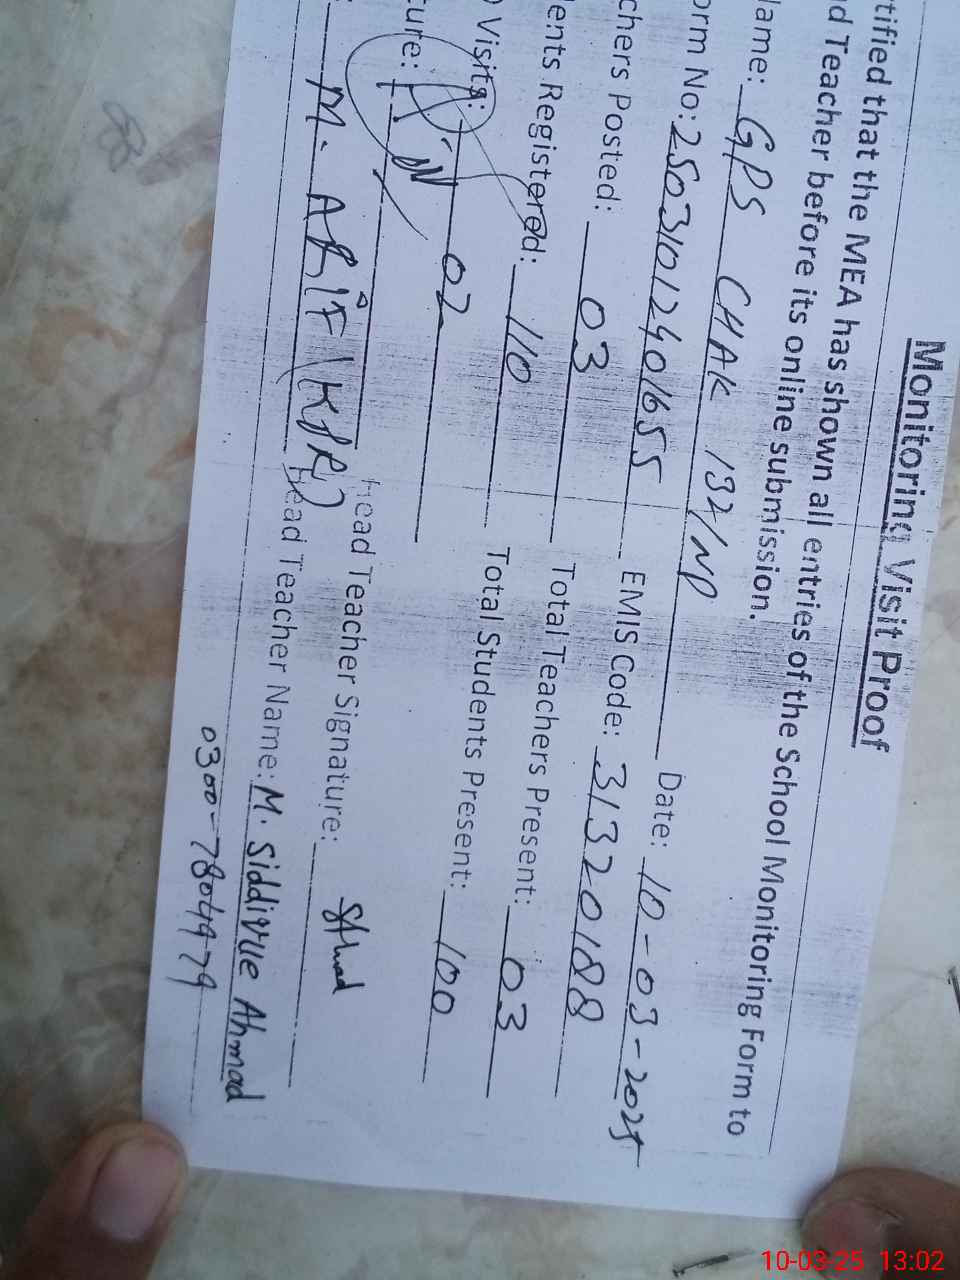 Monitoring Visit Proof
tified that the MEA has shown all entries of the School Monitoring Form to
d Teacher before its online submission.
Name: GPS CHAK 132/NP Date: 10-03-2025
orm No: 25031012401655 EMIS Code: 31320188
chers Posted: 03 Total Teachers Present: 03
ents Registered: 110 Total Students Present: 100
Visits: 02
ture: Head Teacher Signature:
M. ARIF (KPR) Head Teacher Name: M. Siddique Ahmad
0300-7804979
10-03-25 13:02